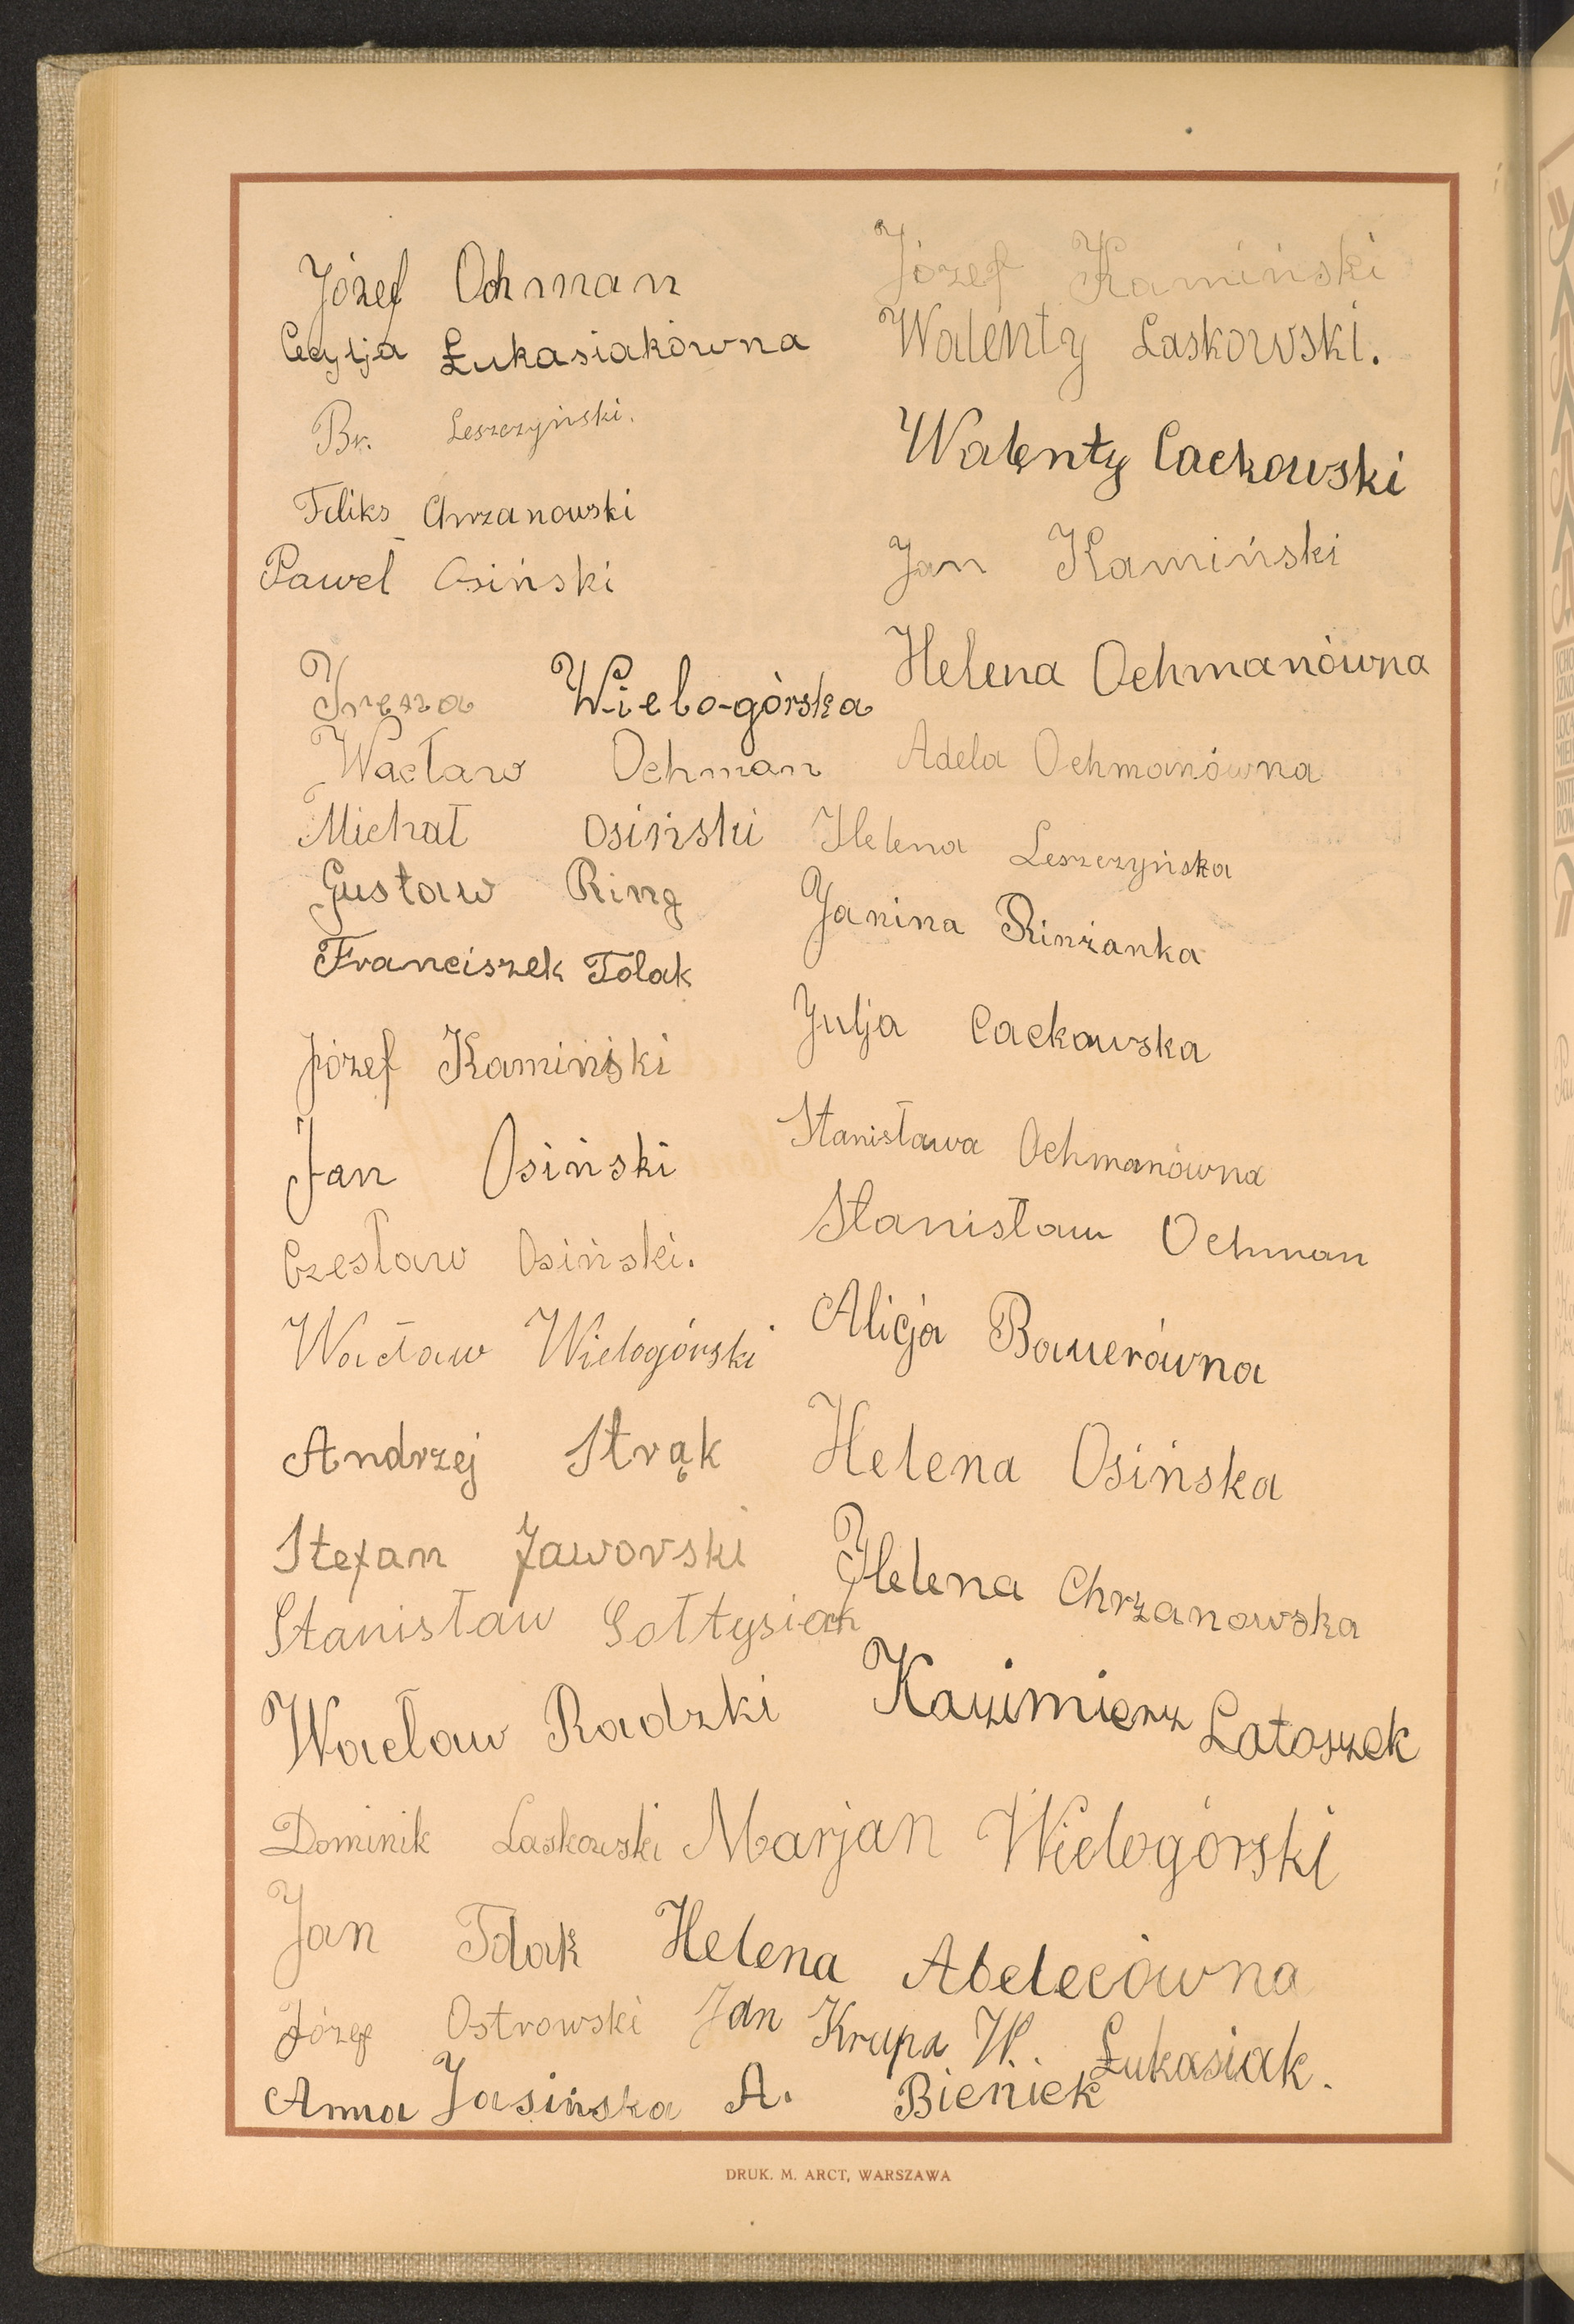 Józef Ochman
Cecylja Łukasiakówna
Br. Leszczyński.
Feliks Chrzanowski
Paweł Osiński
Irena Wielogórska
Wacław Ochman
Michał Osiński
Gustaw Ring
Franciszek Tolak
Józef Kamiński
Jan Osiński
Czesław Osiński.
Wacław Wielogórski
Andrzej Strąk
Stefan Jaworski
Stanisław Sołtysiak
Wacław Radzki
Dominik Laskowski
Jan Tolak
Józef Ostrowski
Anna Jasińska
Józef Kamiński
Walenty Laskowski.
Walenty Cackowski
Jan Kamiński
Helena Ochmanówna
Adela Ochmanówna
Helena Leszczyńska
Janina Rinżanka
Julja Cackowska
Stanisława Ochmanówna
Stanisław Ochman
Alicja Bauerówna
Helena Osińska
Helena Chrzanowska
Kazimierz Latoszek
Marjan Wielogórski
Helena Abelecówna
Jan Krupa W. Łukasiak.
A. Bieniek
DRUK. M. ARCT, WARSZAWA